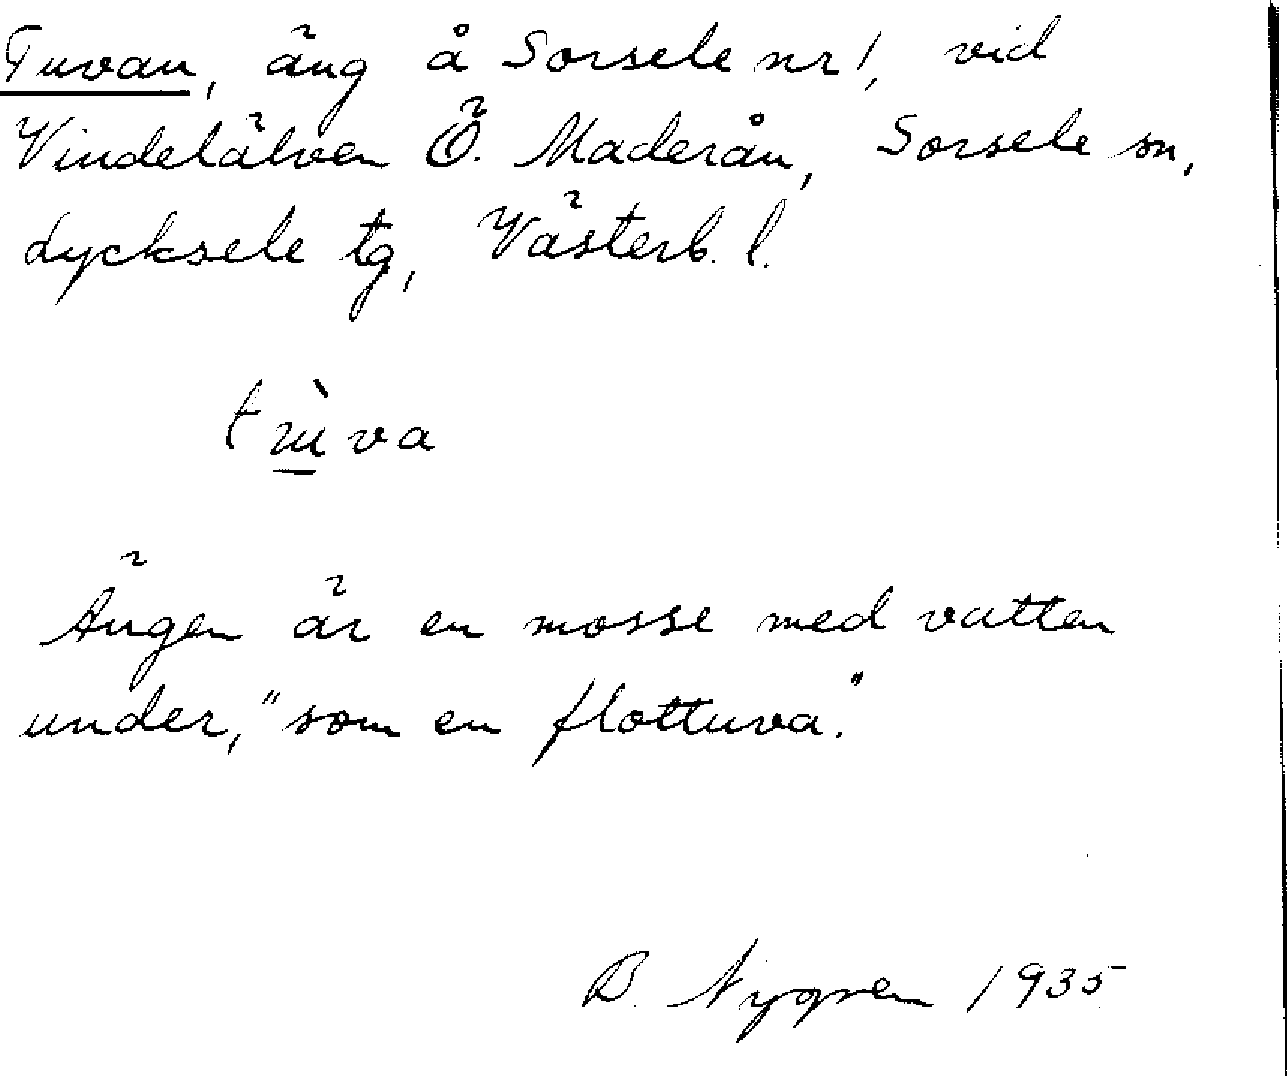 Tuvan, äng å Sorsele nr 1, vid
Vindelälven Ö. Maderån, Sorsele sn,
Lycksele tg, Västerb. l.
tɯ̀va
Ängen är en mosse med vatten
under, "som en flottuva."
B. Nygren 1935